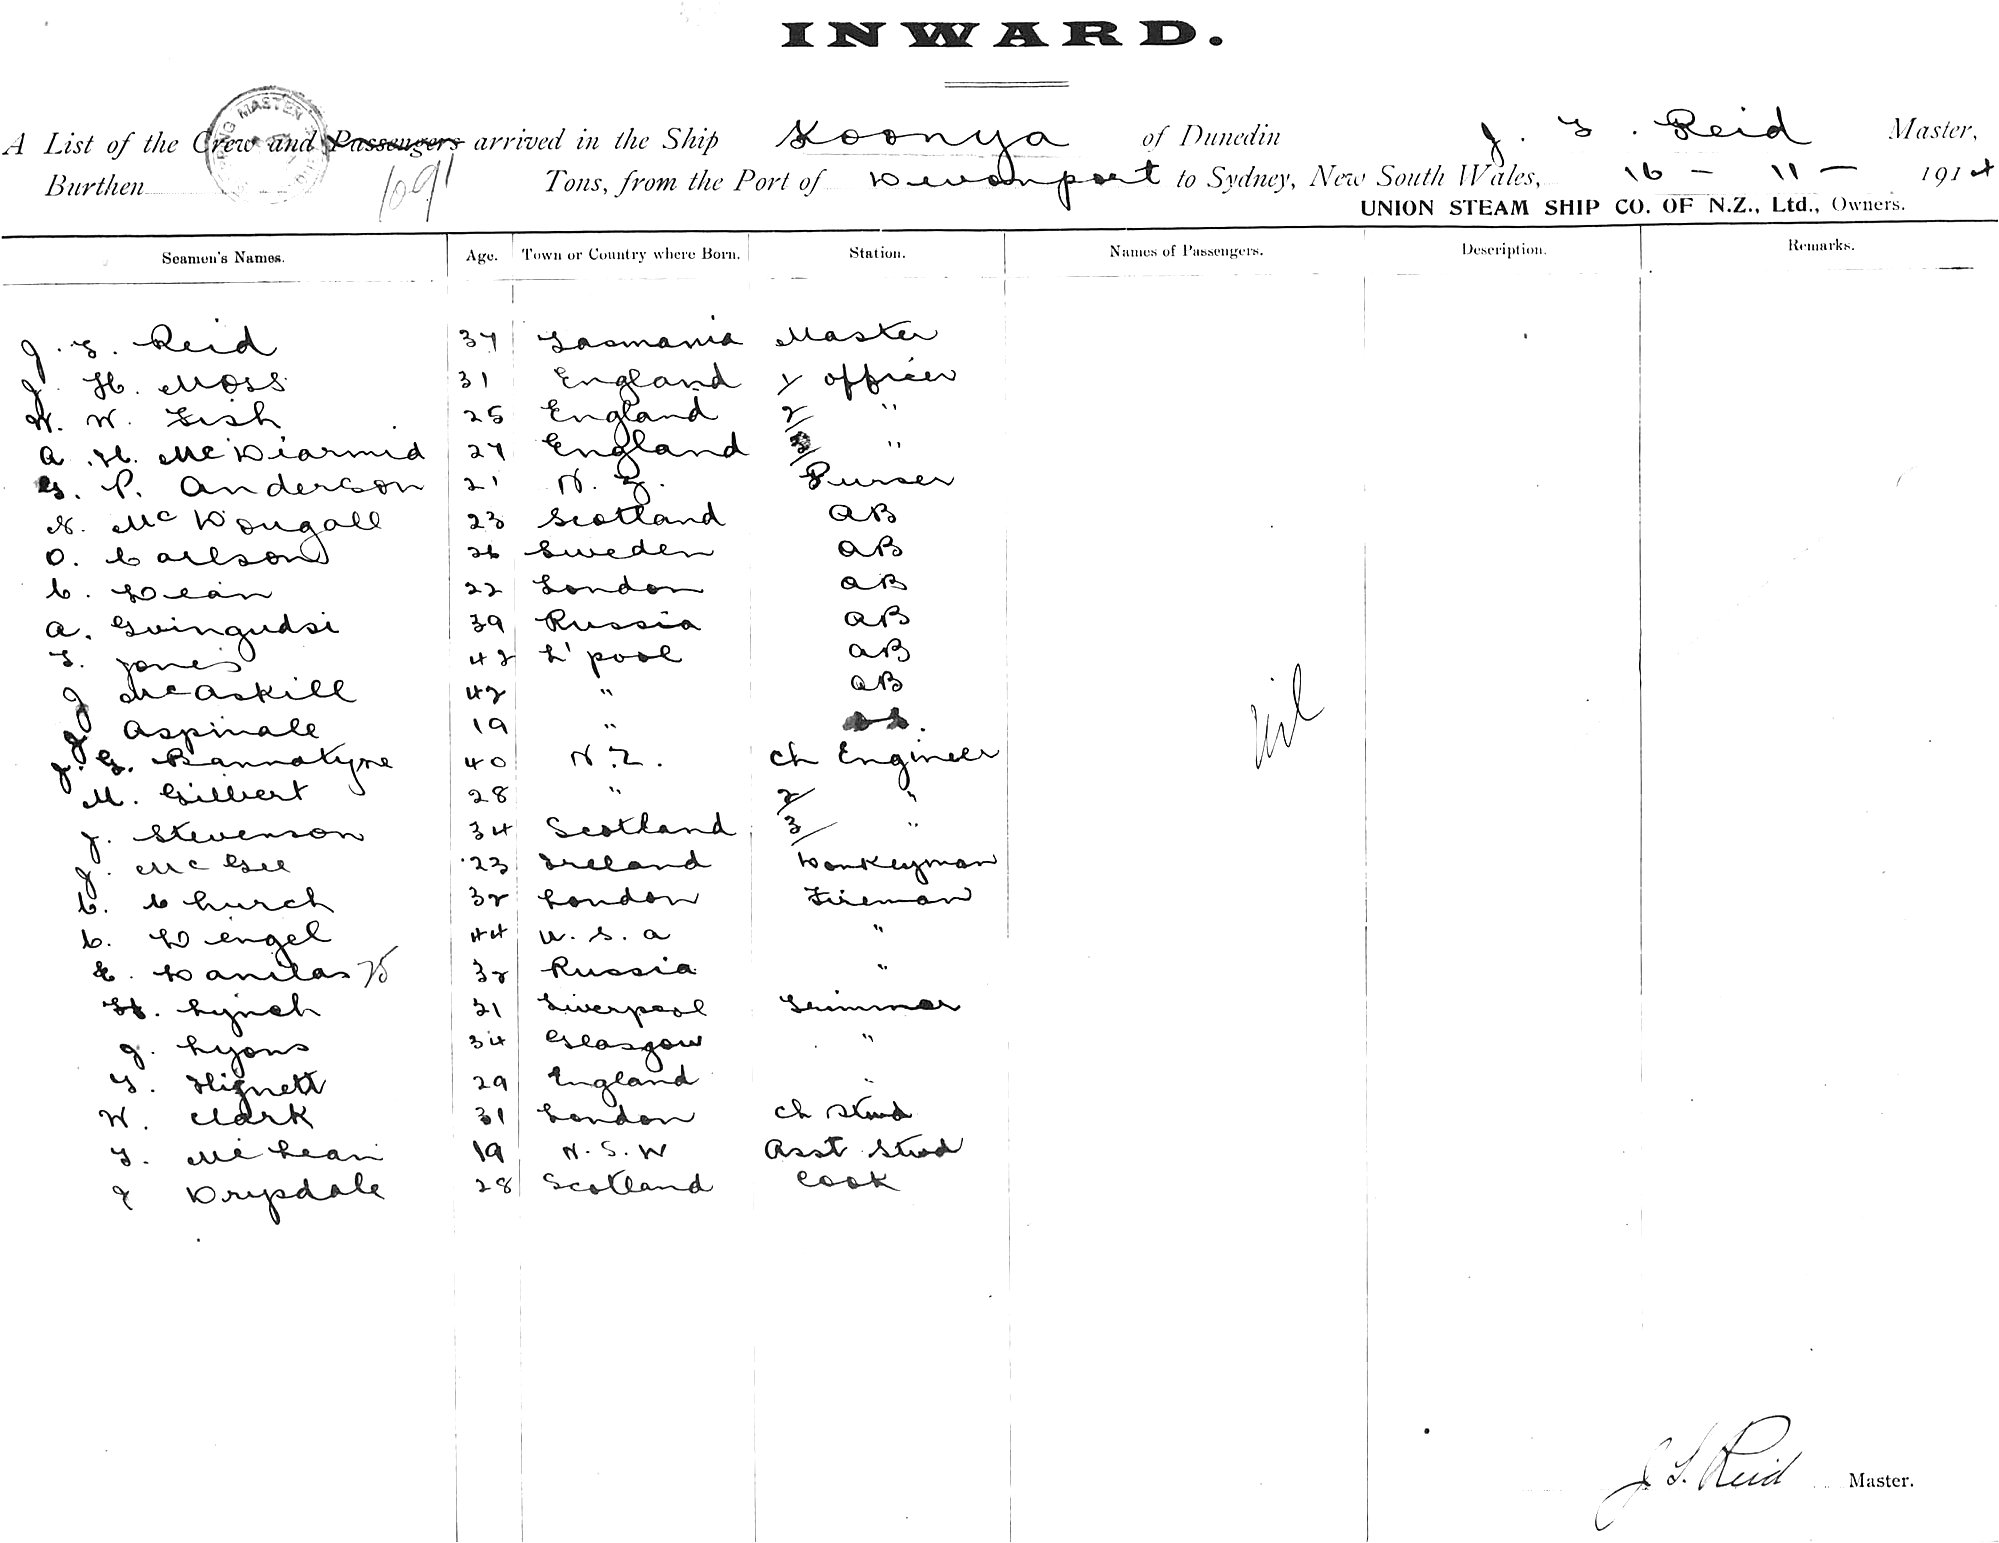 INWARD.
A List of the Crew and Passengers arrived in the Ship Koonya of Dunedin J. T. Reid Master,
Burthen 1091 Tons, from the Port of Devonport to Sydney, New South Wales, 16 - 11 - 1914
UNION STEAM SHIP CO. OF N.Z., Ltd., Owners.
Seamen's Names. Age. Town or Country where Born. Station. Names of Passengers. Description. Remarks.
J. T. Reid 37 Tasmania Master
J. H. Moss 31 England 1/ officer
W. W. Fish 25 England 2/ "
A. H. McDiarmid 27 England 3/ "
G. P. Anderson 21 N. Z. Purser
N. McDougall 23 Scotland AB
O. Carlson 26 Sweden AB
C. Dean 22 London AB
A. Gvingudsi 39 Russia AB
T. Jones 42 L'pool AB
J McAskill 42 " AB
J Aspinale 19 "
J. G. Bannatyne 40 N.Z. Ch Engineer
M. Gilbert 28 " 2/ "
J. Stevenson 34 Scotland 3/ "
J. McGee 23 Ireland Donkeyman
C. Church 32 London Fireman
C. Dengel 44 U. S. A "
E. Danilas 25 32 Russia "
H. Lynch 21 Liverpool Trimmer
J. Lyons 34 Glasgow "
T. Hignett 29 England "
W. Clark 31 London Ch Stwd
T. McLean 19 N. S. W Asst Stwd
J Drysdale 28 Scotland Cook
Nil
J T. Reid Master.